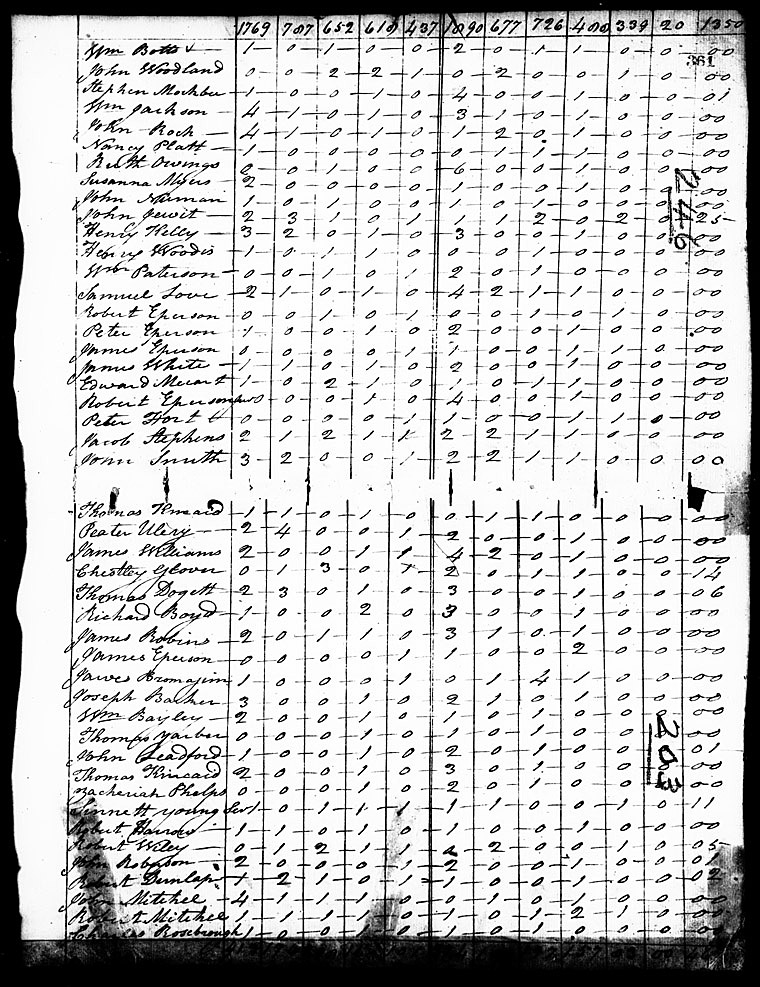 1769 787 652 618 437 1890 677 726 400 339 20 1350
361
Wm Botts 1 0 1 0 0 2 0 1 1 0 0 00
John Woodland 0 0 2 2 1 0 2 0 0 1 0 00
Stephen 1 0 0 1 0 4 0 0 1 0 0 01
Wm Jackson 4 1 0 1 0 3 1 0 1 0 0 00
John Rock 4 1 0 1 0 1 2 0 1 0 0 00
Nancy Platt 1 0 0 0 0 0 1 1 1 0 0 00
Ruth Owings 2 0 1 0 0 6 0 0 1 0 0 00
Susanna Myers 2 0 0 0 0 1 0 1 0 0 0 00
John 1 0 1 0 1 1 0 1 0 0 0 00
John Jewit 2 3 1 0 1 1 1 2 0 2 0 25
Henry Kelly 3 2 0 1 0 3 0 0 1 0 0 00
246
Henry Woodis 1 0 1 1 0 0 0 1 0 0 0 00
Wm Paterson 0 0 1 0 1 2 0 1 0 0 0 00
Samuel Love 2 1 0 1 0 4 2 1 1 0 0 00
Robert Eperson 0 0 1 0 0 1 0 1 0 0 0 00
Peter Eperson 1 0 0 1 0 2 0 0 1 0 0 00
James Eperson 0 0 0 0 1 1 0 0 1 1 0 00
James White 1 1 0 1 0 2 0 0 1 0 0 00
Edward 1 0 2 1 0 1 0 1 1 0 0 00
Robert Eperson 0 0 0 1 0 4 0 0 1 0 0 00
Peter Fort 0 0 0 0 1 1 0 0 1 1 0 00
Jacob Stephens 2 1 2 1 1 2 2 1 1 0 0 00
John Smith 3 2 0 0 1 2 2 1 1 0 0 00
Thomas 1 1 0 1 0 0 1 1 0 0 0 00
Peater Ulery 2 4 0 0 1 2 0 0 0 1 0 00
James Williams 2 0 0 1 1 4 2 0 1 0 0 00
Chestley Glover 0 1 3 0 1 2 0 1 1 0 0 14
Thomas Dogett 2 3 0 1 0 3 0 0 1 0 0 06
Richard Boyd 1 0 0 2 0 3 0 0 1 0 0 00
James Robins 2 0 1 1 0 3 1 0 1 0 0 00
James Eperson 0 0 0 0 1 1 0 0 2 0 0 00
1 0 0 0 1 0 1 4 1 0 0 00
Joseph 3 0 0 1 0 2 1 0 1 0 0 00
Wm Bayley 2 0 0 1 0 1 0 1 0 0 0 00
Thomas Yarber 0 0 0 1 0 1 0 1 0 0 0 00
John Leadford 1 0 0 1 0 2 0 1 0 0 0 01
203
Thomas Kincaid 2 0 0 1 0 3 0 1 0 0 0 00
Zacheriah Phelps 0 0 0 1 0 2 0 1 0 0 0 00
Young 1 0 1 1 1 1 1 0 0 1 0 11
Robert 1 1 0 1 0 1 0 0 1 0 0 00
Robert Wiley 0 1 2 1 1 2 0 0 1 0 05
John Roberson 2 0 0 0 1 2 0 0 1 0 0 01
Robert Dunlap 1 2 1 0 1 1 0 0 1 0 0 02
John Mitchel 4 1 1 0 1 1 0 1 0 1 0 00
Robert Mitchel 1 1 1 1 0 1 0 1 2 1 0 00
Charles Rosebrough 1 0 0 1 0 1 1 1 0 0 0 00